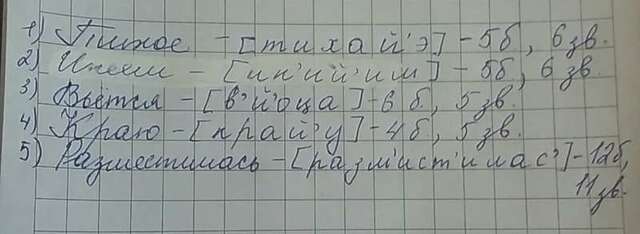 1) Тихое - [тихай'э] - 5б, 6 зв.
2) Инеем - [ин'ий'им] - 5б, 6 зв.
3) Вьётся - [в'й'оца] - 6 б, 5 зв.
4) Краю - [край'у] - 4б, 5 зв.
5) Разместилась - [разм'ист'илас'] - 12б,
11 зв.